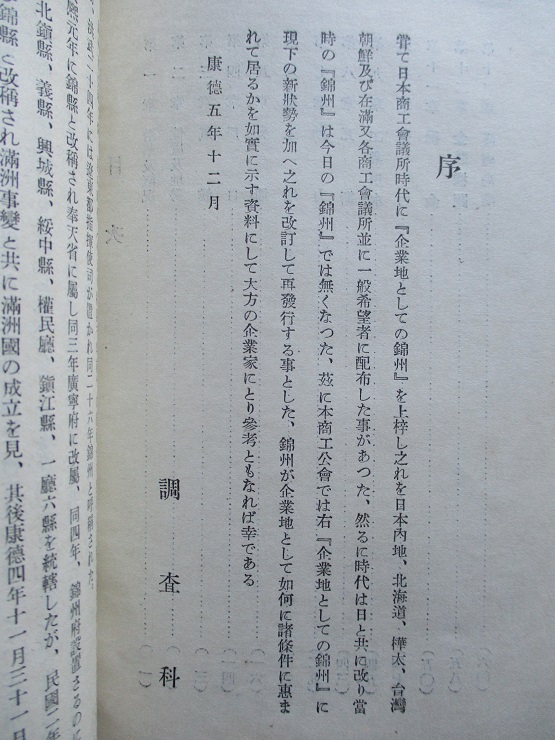 序
嘗て日本商工會議所時代に『企業地としての錦州』を上梓し之れを日本內地、北海道、樺太、台灣
朝鮮及び在滿又各商工會議所並に一般希望者に配布した事があつた、然るに時代は日と共に改り當
時の『錦州』は今日の『錦州』では無くなつた、玆に本商工公會では右『企業地としての錦州』に
現下の新狀勢を加へ之れを改訂して再發行する事とした、錦州が企業地として如何に諸條件に惠ま
れて居るかを如實に示す資料にして大方の企業家にとり參考ともなれば幸である
康德五年十二月
調査科
二十四年には遼東都指揮使司が置かれ同二十六年錦州と呼稱された
熙元年に錦縣と改稱され奉天省に屬し同三年廣寧府に改屬、同四年、錦州府設置さるのに
北鎭縣、義縣、興城縣、綏中縣、權民廳、鎭江縣、一廳六縣を統轄したが、民國二年
錦縣と改稱され滿洲事變と共に滿洲國の成立を見、其後康德四年十一月三十一日